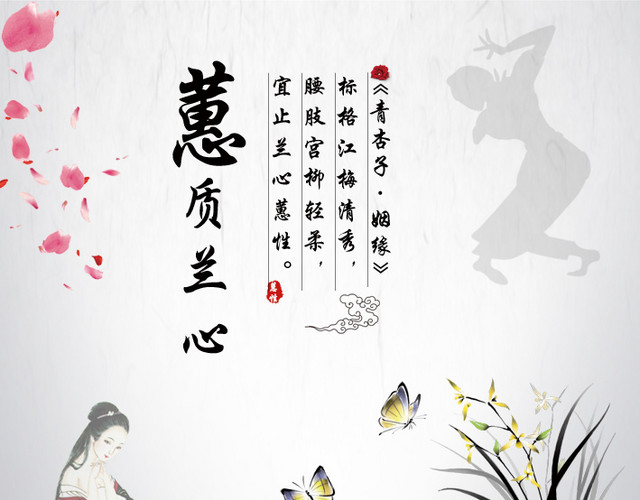 《青杏子·姻缘》
标格江梅清秀，
腰肢宫柳轻柔，
宜止兰心蕙性。
蕙质兰心